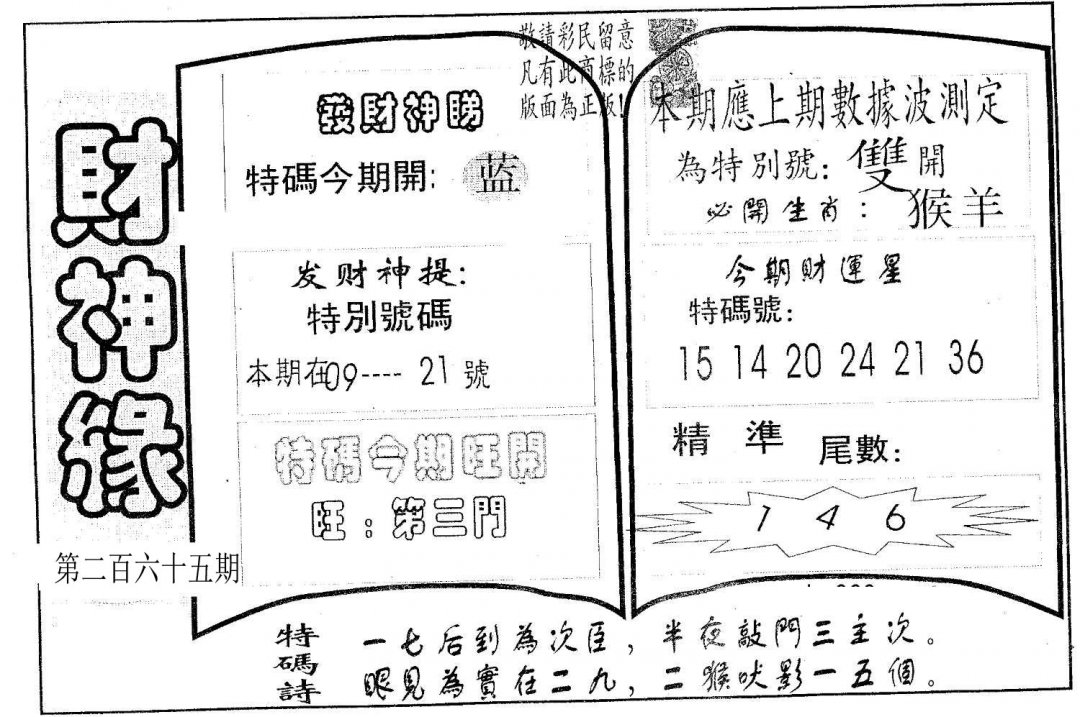 敬請彩民留意
凡有此商標的
版面為正版!
財神緣
第二百六十五期
發財神睇
特碼今期開: 蓝
发财神提:
特別號碼
本期在09----21號
特碼今期旺開
旺:第三門
本期應上期數據波測定
為特別號:雙開
必開生肖:猴羊
今期財運星
特碼號:
15 14 20 24 21 36
精準 尾數:
1 4 6
特碼詩
一七后到為次臣,半夜敲門三主次。
眼見為實在二九,二猴吠影一五個。